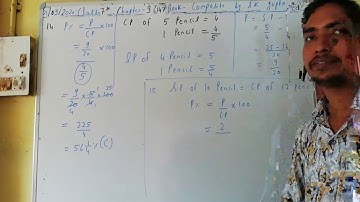 Class 7th Chapter - 9 Book - Composite by S.K. Gupta
14. P% = P/CP × 100
= 9/20 × 100
4/5
= 9/20 × 5/4 × 100
= 225/4
= 56 1/4 % (C)
CP of 5 Pencil = 4
1 Pencil = 4/5
SP of 4 Pencil = 5
1 Pencil = 5/4
P = S.P -
= 5/4 -
= 25 - 16
= 9
15. S.P of 10 Pencil = CP of 12 pen
P% = P/CP × 100
= 2